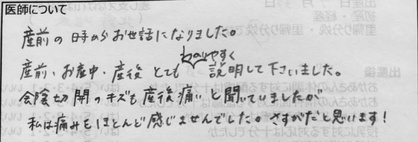 医師について
産前の時からお世話になりました。
産前・お産中・産後とてもわかりやすく説明して下さいました。
会陰切開のキズも産後痛いと聞いていましたが
私は痛みをほとんど感じませんでした。さすがだと思います!